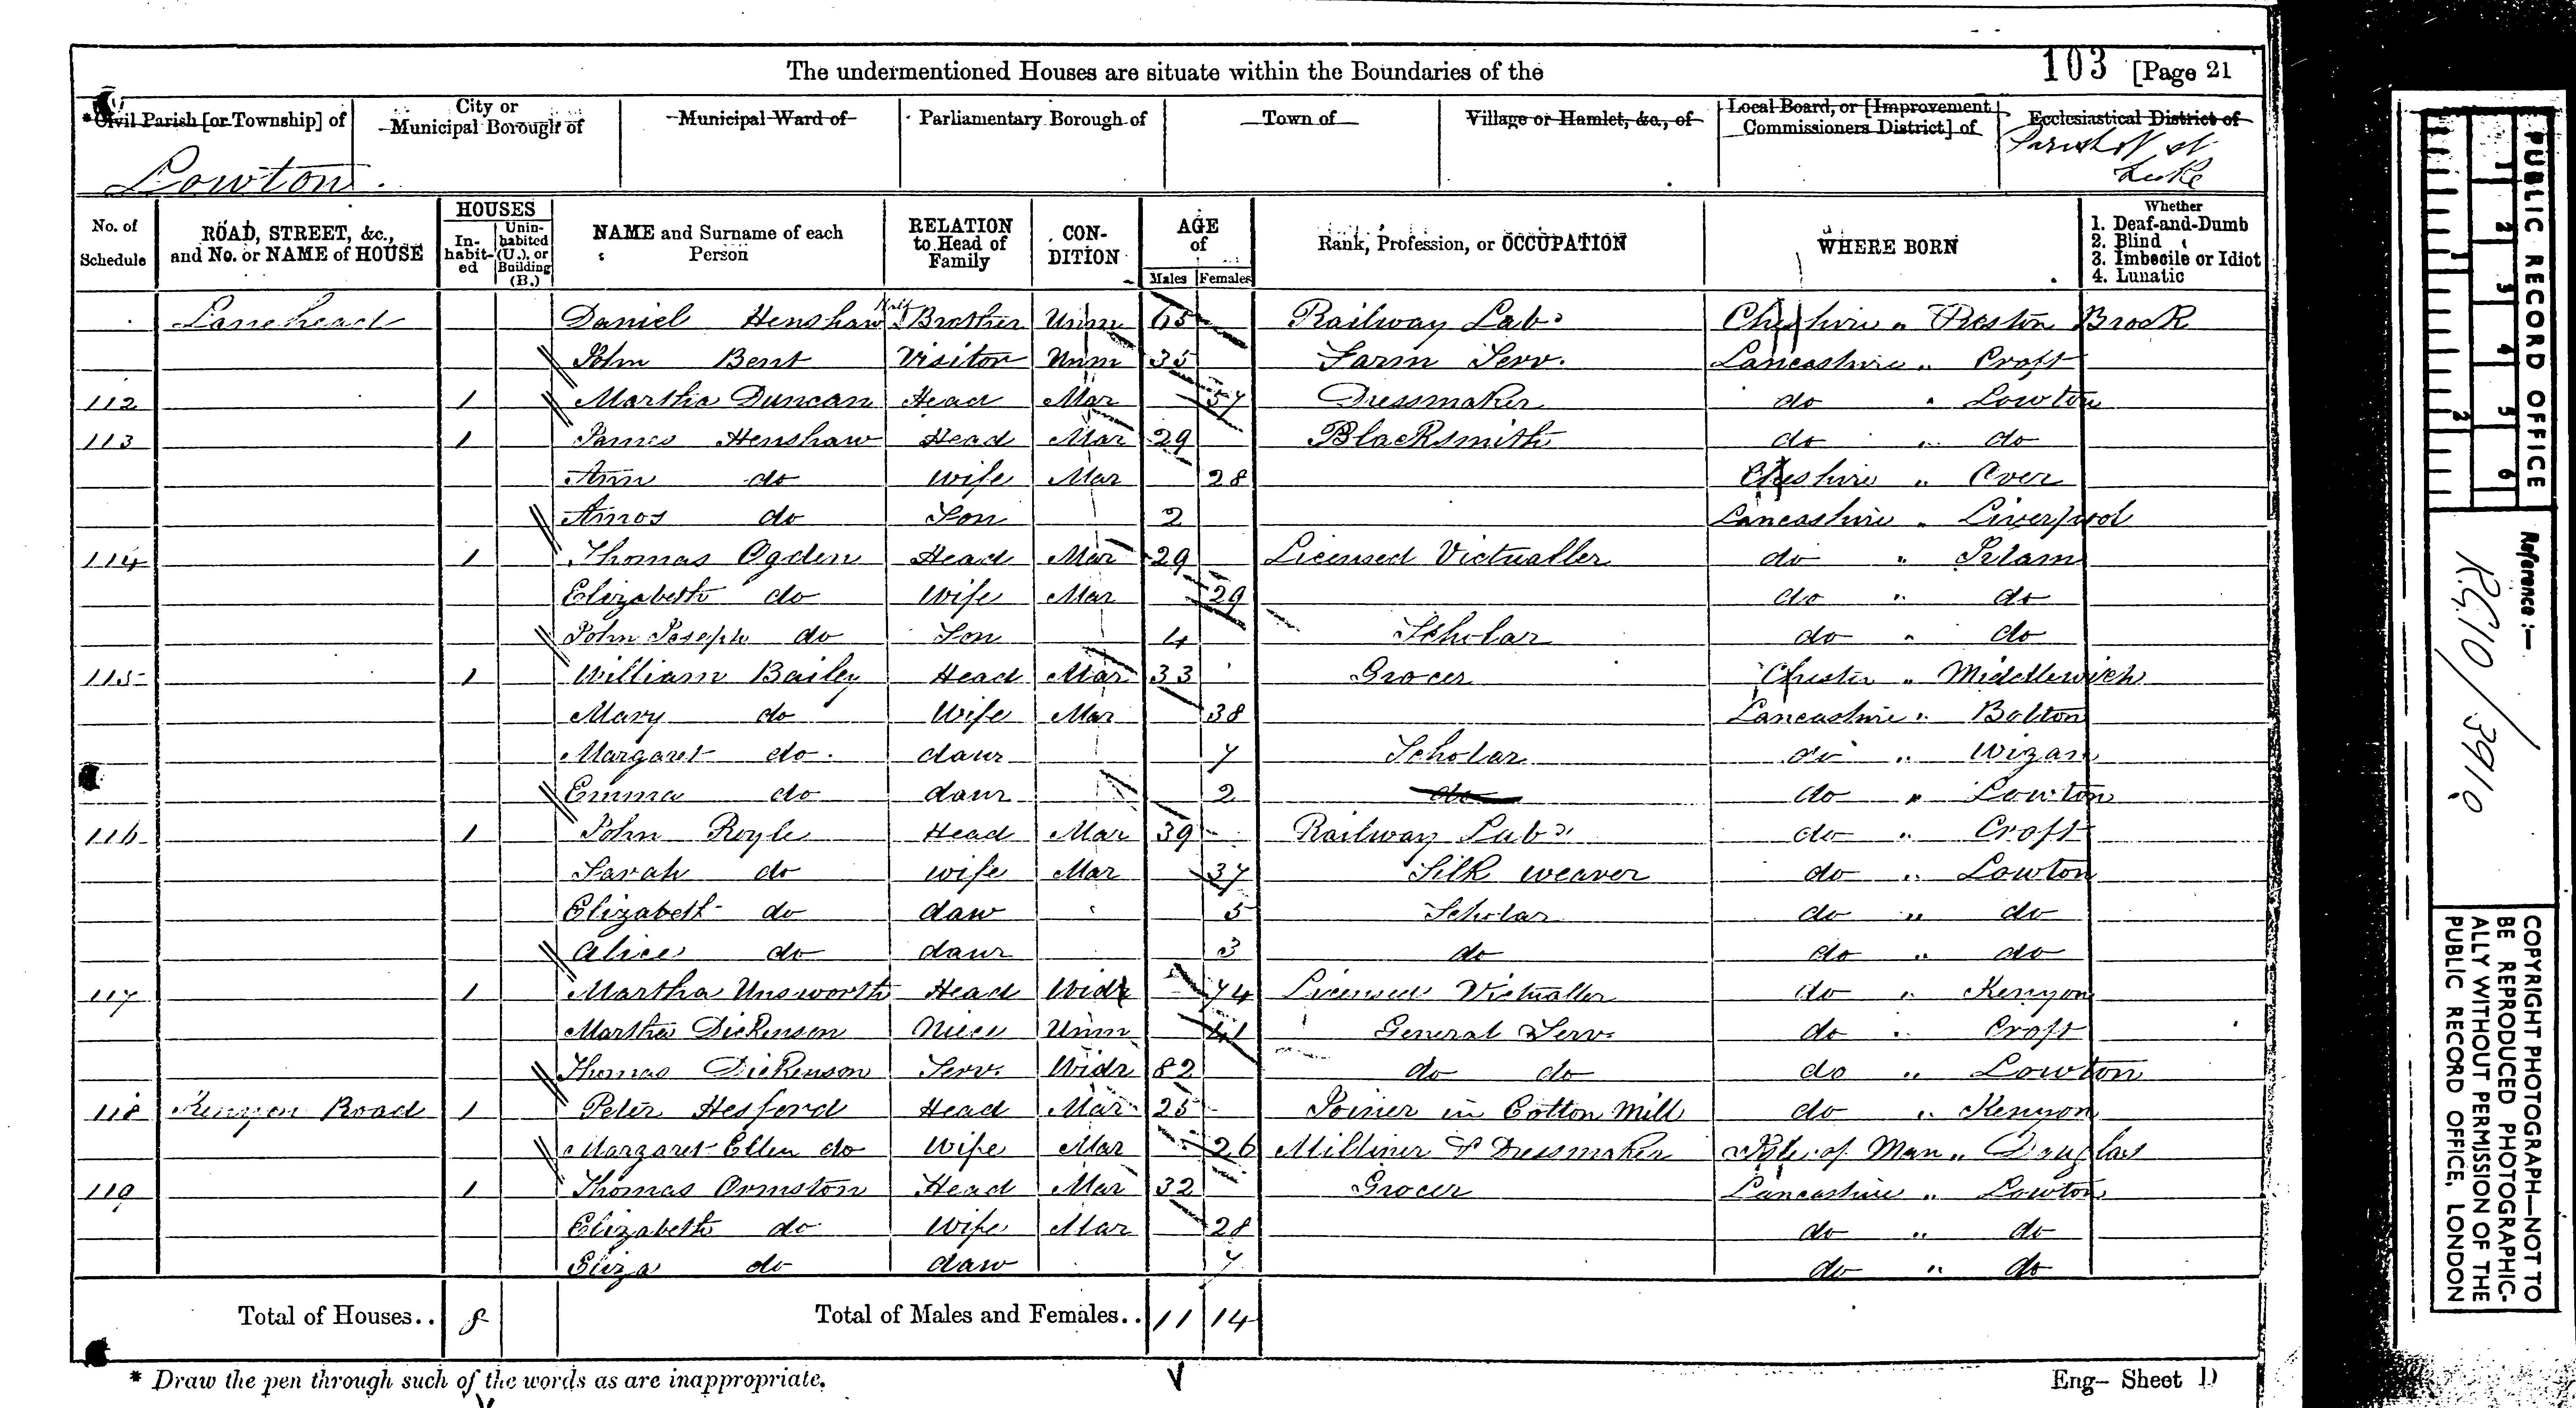 The undermentioned Houses are situate within the Boundaries of the 103 [Page 21
*Civil Parish [or Township] of City or Municipal Borough of Municipal Ward of Parliamentary Borough of Town of Village or Hamlet, &c., of Local Board, or [Improvement Commissioners District] of Ecclesiastical District of
Lowton. Parish of St Luke
No. of Schedule ROAD, STREET, &c., and No. or NAME of HOUSE HOUSES Inhabited Uninhabited (U.), or Building (B.) NAME and Surname of each Person RELATION to Head of Family CONDITION AGE of Males Females Rank, Profession, or OCCUPATION WHERE BORN Whether 1. Deaf-and-Dumb 2. Blind 3. Imbecile or Idiot 4. Lunatic
Lanehead Daniel Henshaw Half Brother Unm 65 Railway Labr Cheshire " Preston Brook
John Bent Visitor Unm 35 Farm Serv. Lancashire " Croft
112 1 Martha Duncan Head Mar 57 Dressmaker do " Lowton
113 1 James Henshaw Head Mar 29 Blacksmith do " do
Ann do Wife Mar 28 Cheshire " Over
Amos do Son 2 Lancashire " Liverpool
114 1 Thomas Ogden Head Mar 29 Licensed Victualler do " Irlam
Elizabeth do Wife Mar 29 do " do
John Joseph do Son 4 Scholar do " do
115 1 William Bailey Head Mar 33 Grocer Chester " Middlewich
Mary do Wife Mar 38 Lancashire " Bolton
Margaret do daur 7 Scholar do " Wigan
Emma do daur 2 do do " Lowton
116 1 John Royle Head Mar 39 Railway Labr do " Croft
Sarah do wife Mar 37 Silk weaver do " Lowton
Elizabeth do daur 5 Scholar do " do
Alice do daur 3 do do " do
117 1 Martha Unsworth Head Widr 74 Licensed Victualler do " Kenyon
Martha Dickenson Niece Unm 41 General Serv. do " Croft
Thomas Dickenson Serv. Widr 82 do do do " Lowton
118 Kenyon Road 1 Peter Hesford Head Mar 25 Joiner in Cotton Mill do " Kenyon
Margaret Ellen do Wife Mar 26 Milliner & Dressmaker Isle of Man " Douglas
119 1 Thomas Ormston Head Mar 32 Grocer Lancashire " Lowton
Elizabeth do Wife Mar 28 do " do
Eliza do daur 7 do " do
Total of Houses.. 8 Total of Males and Females.. 11 14
* Draw the pen through such of the words as are inappropriate. Eng- Sheet D
PUBLIC RECORD OFFICE
1 2 3 4 5 6
1 2
Reference:—
RG10/3918
COPYRIGHT PHOTOGRAPH—NOT TO
BE REPRODUCED PHOTOGRAPHIC-
ALLY WITHOUT PERMISSION OF THE
PUBLIC RECORD OFFICE, LONDON